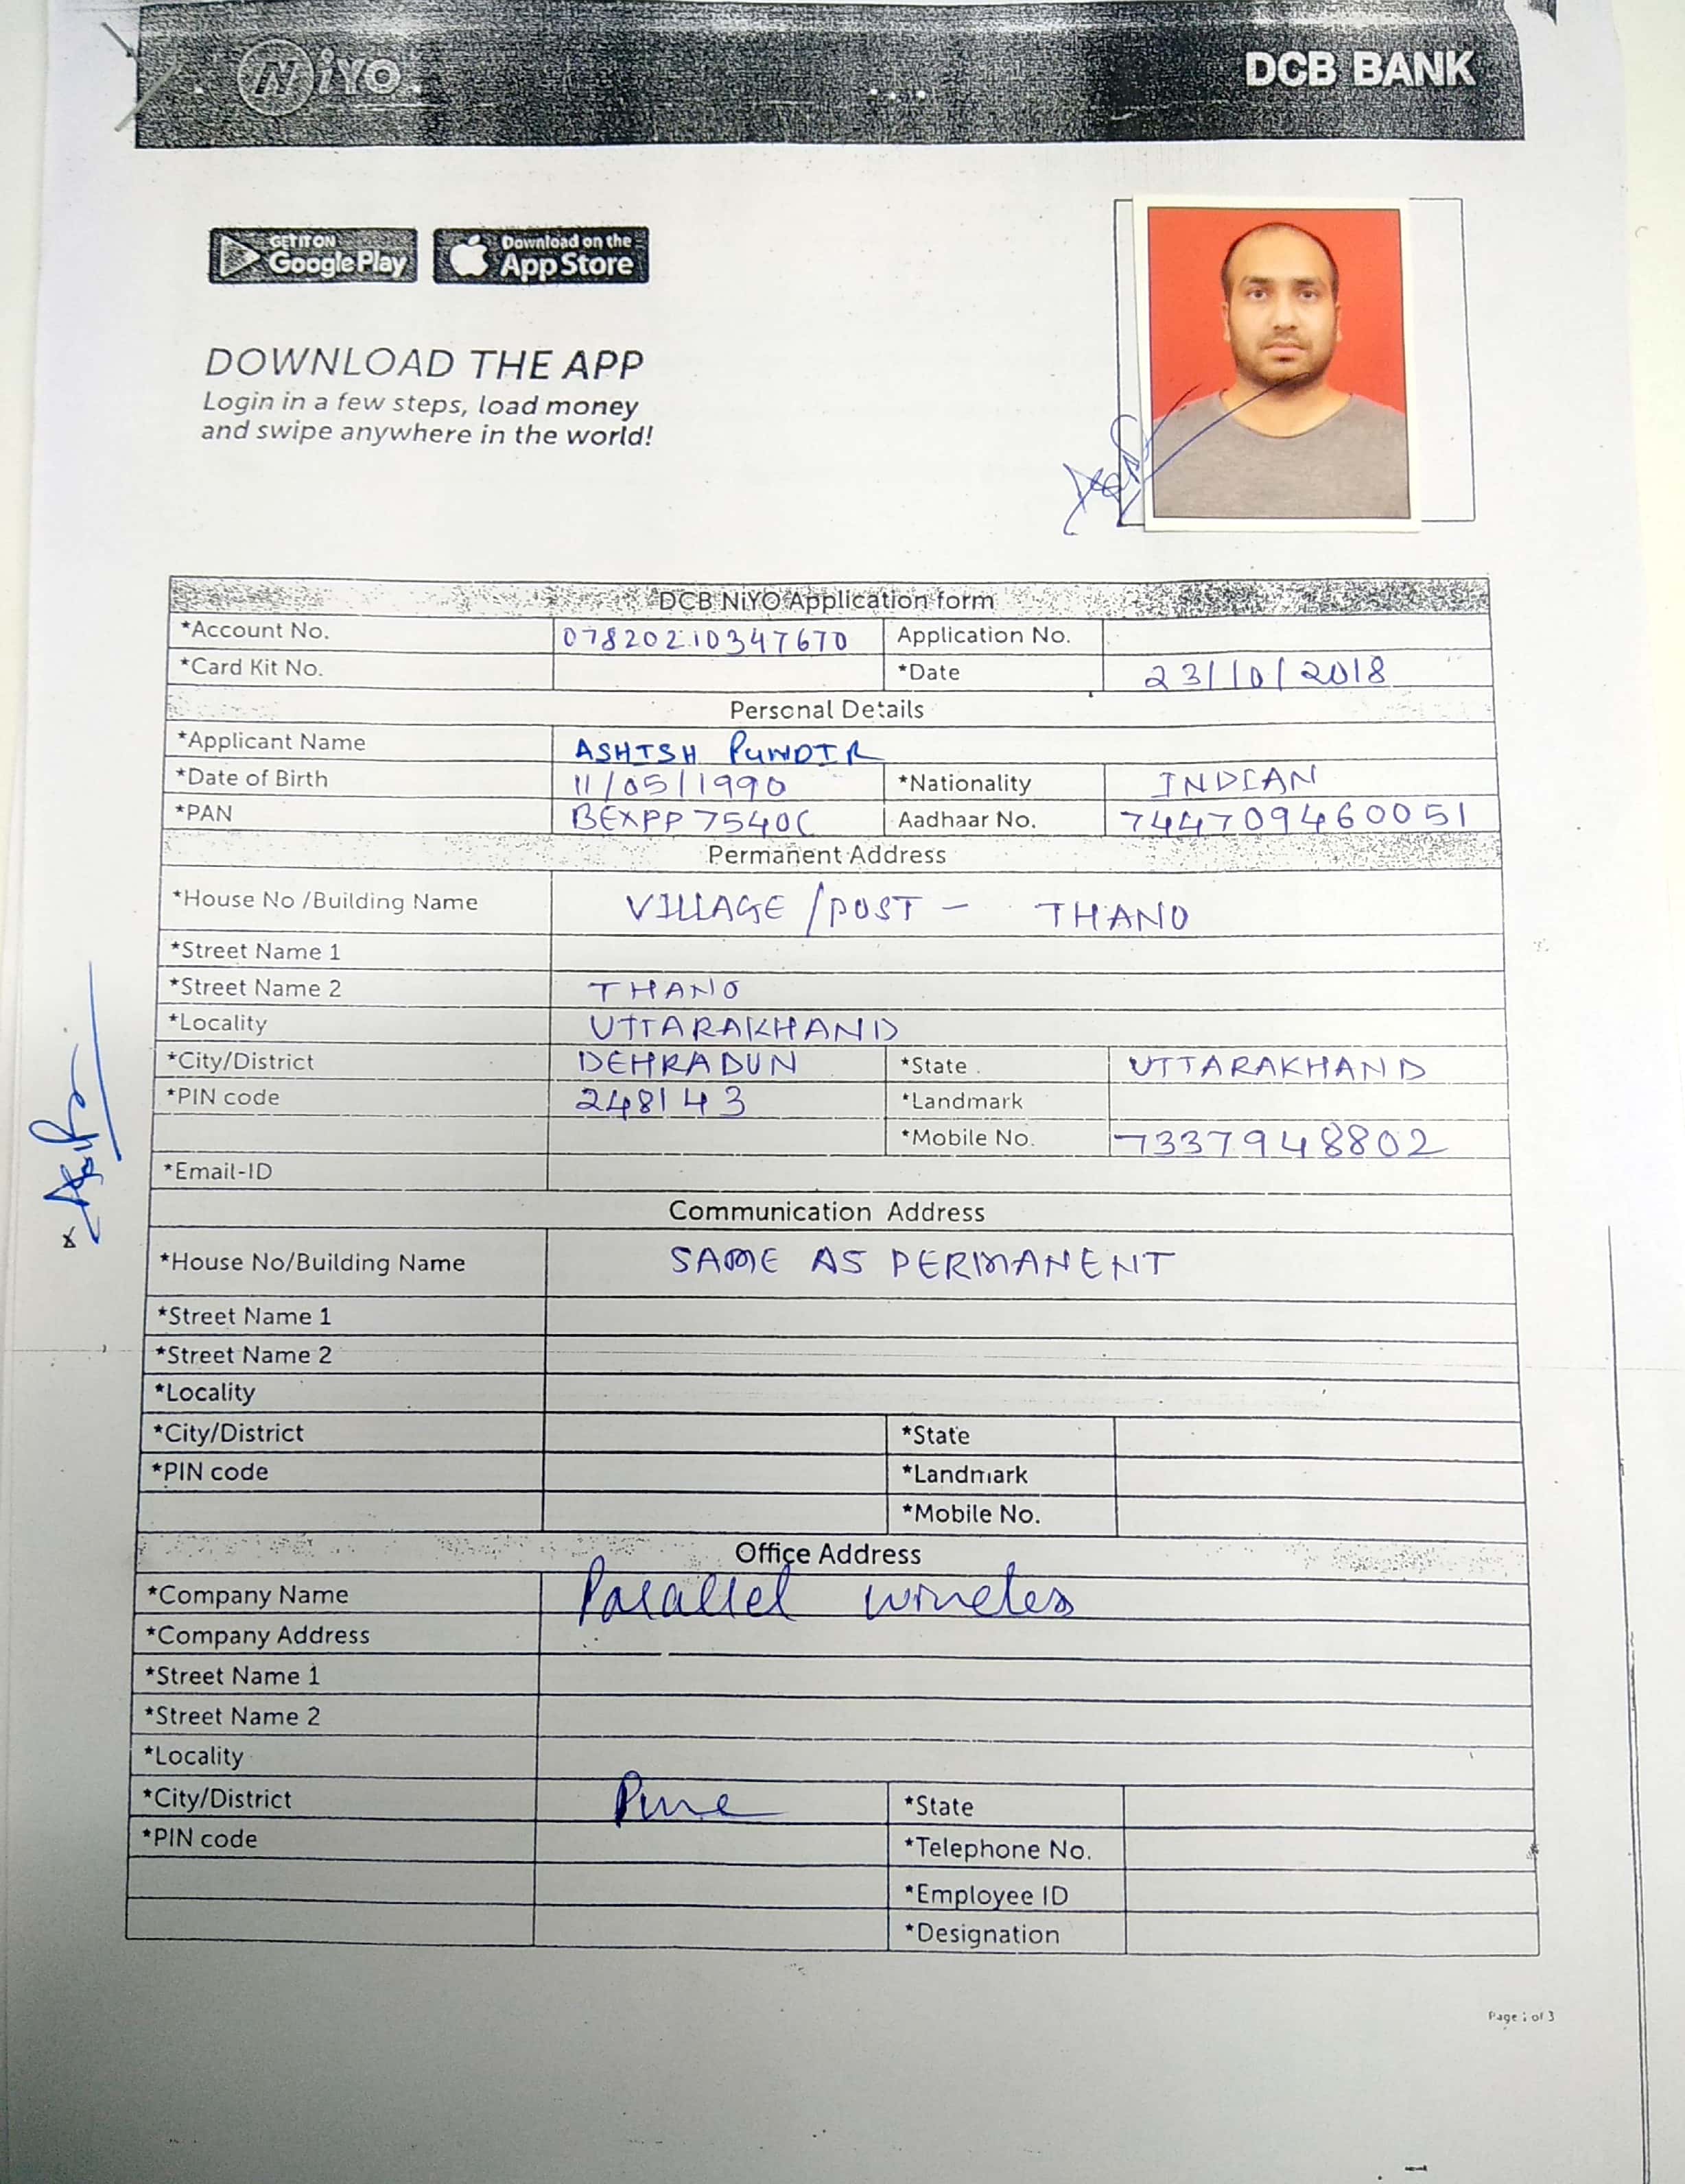 NiYO
DCB BANK
GET IT ON
Google Play
Download on the
App Store
DOWNLOAD THE APP
Login in a few steps, load money
and swipe anywhere in the world!
DCB NiYO Application form
*Account No. 07820210347670 Application No.
*Card Kit No. *Date 23/10/2018
Personal Details
*Applicant Name ASHISH PUNDIR
*Date of Birth 11/05/1990 *Nationality INDIAN
*PAN BEXPP7540C Aadhaar No. 744709460051
Permanent Address
*House No /Building Name VILLAGE /POST - THANO
*Street Name 1
*Street Name 2 THANO
*Locality UTTARAKHAND
*City/District DEHRADUN *State UTTARAKHAND
*PIN code 248143 *Landmark
*Mobile No. 7337948802
*Email-ID
Communication Address
*House No/Building Name SAME AS PERMANENT
*Street Name 1
*Street Name 2
*Locality
*City/District *State
*PIN code *Landmark
*Mobile No.
Office Address
*Company Name Parallel wireless
*Company Address
*Street Name 1
*Street Name 2
*Locality
*City/District Pune *State
*PIN code *Telephone No.
*Employee ID
*Designation
Page 1 of 3